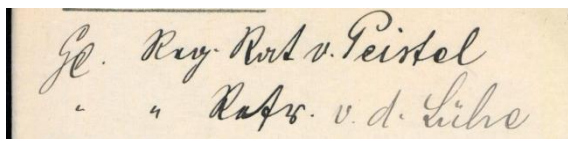 Gl. Reg. Rat v. Peistel
" " Refr. v. d. Lühe